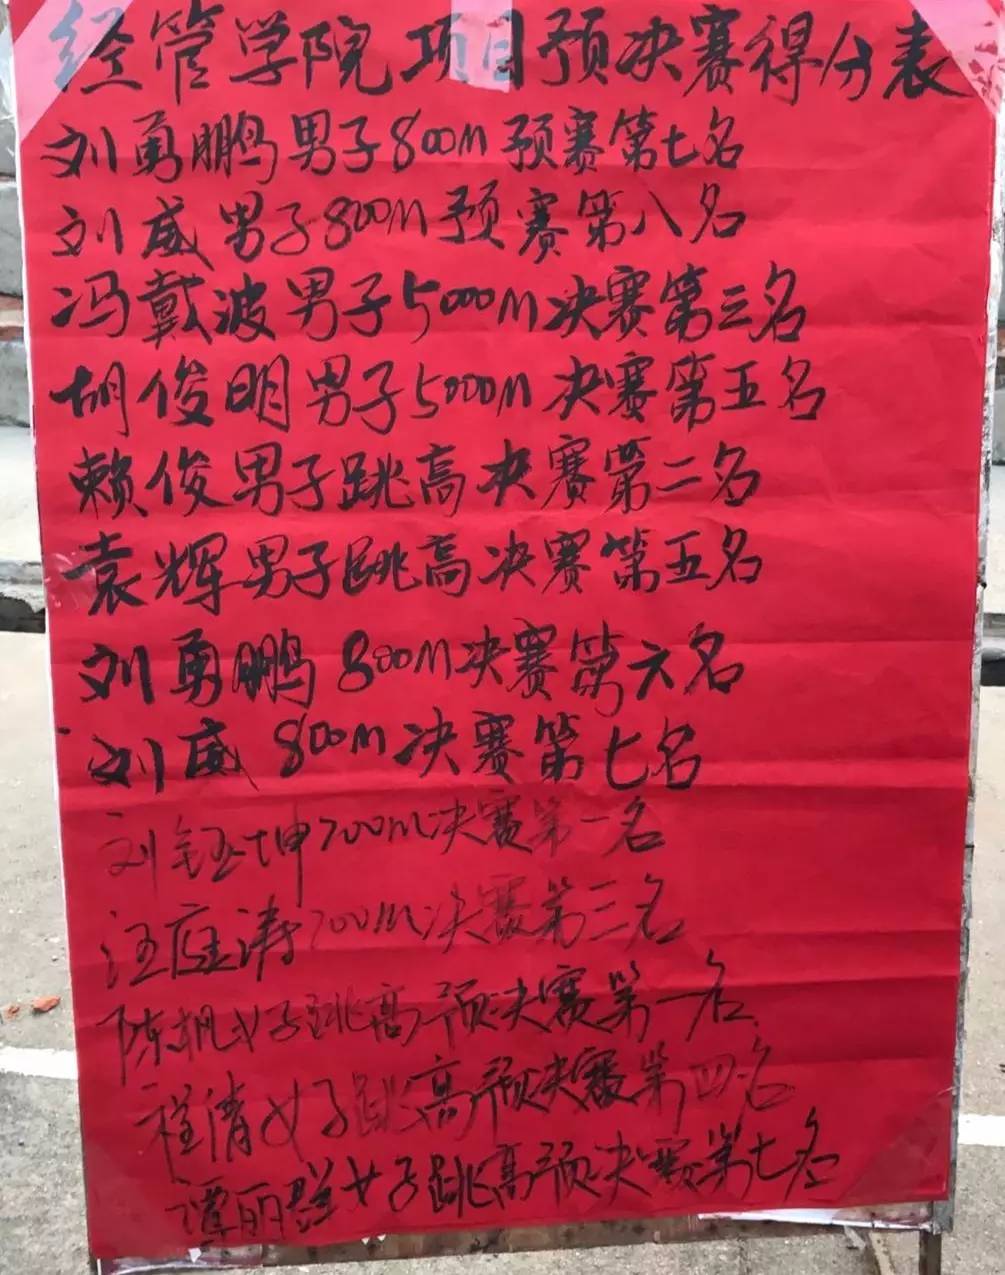 经管学院项目预决赛得分表
刘勇鹏男子800m预赛第七名
刘威男子800m预赛第八名
冯戴波男子5000m决赛第三名
胡俊明男子5000m决赛第五名
赖俊男子跳高决赛第二名
袁辉男子跳高决赛第五名
刘勇鹏800m决赛第六名
刘威800m决赛第七名
刘钰坤200m决赛第一名
汪庭涛200m决赛第三名
陈枫女子跳高预决赛第一名
程清女子跳高预决赛第四名
谭丽群女子跳高预决赛第七名